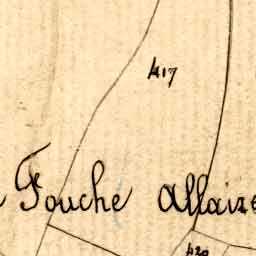 417
Fouche Allaize
420